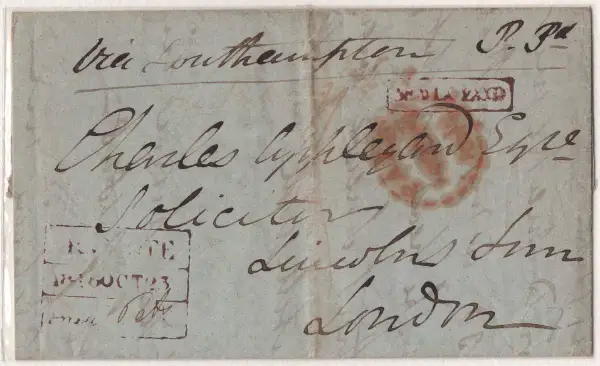 Via Southampton P. Pd
PAID
Charles Appleyard Esqre
Solicitor
Lincolns Inn
London
OCT 23
Pd